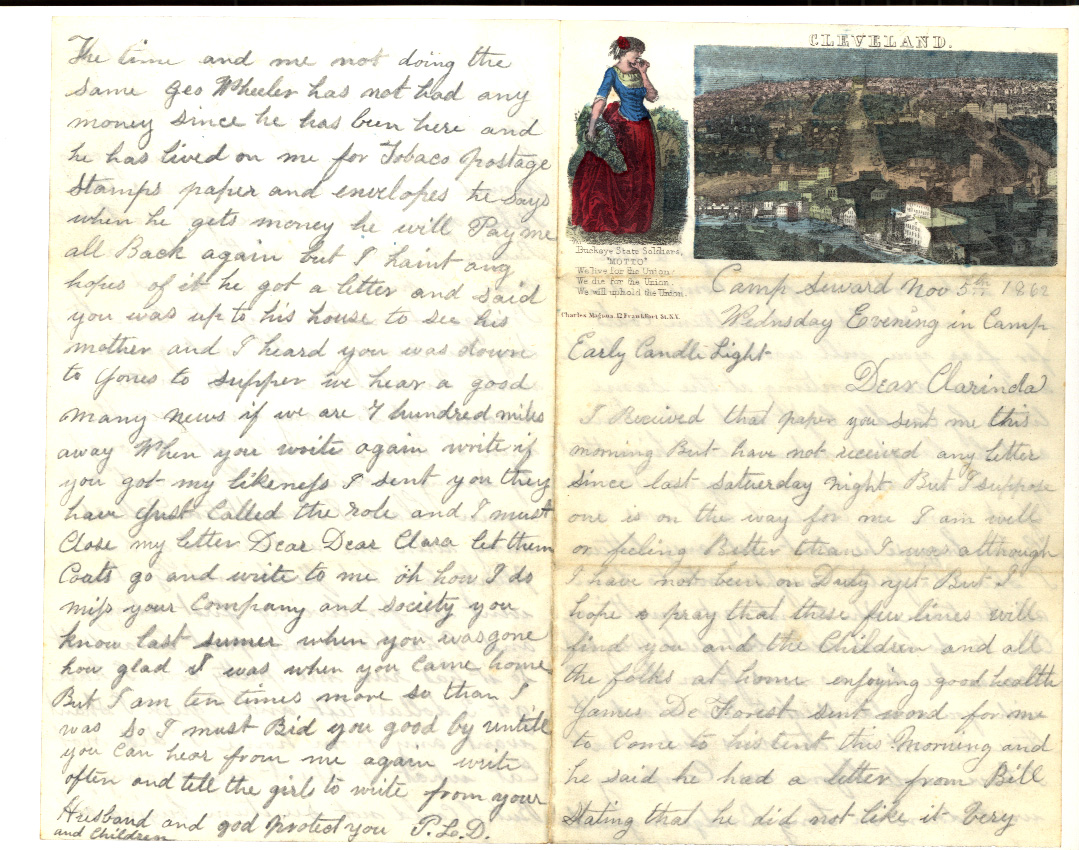 The time and me not doing the
same Geo Wheeler has not had any
money since he has been here and
he has lived on me for Tobaco postage
Stamps paper and envelopes he says
when he gets money he will Pay me
all Back again but I haint any
hopes of it he got a letter and said
you was up to his house to see his
mother and I heard you was down
to Jones to supper we hear a good
many news if we are 7 hundred miles
away When you write again write if
you got my likeness I sent you they
have Just Called the role and I must
Close my letter Dear Dear Clara let them
Coats go and write to me oh how I do
miss your Company and society you
know last sumer when you was gone
how glad I was when you Came home
But I am ten times more so than I
was So I must Bid you good by untill
you Can hear from me again write
often and tell the girls to write from your
Husband and god Protect you P. L. D.
and Children
CLEVELAND.
Buckeye State Soldiers,
"MOTTO"
We live for the Union.
We die for the Union.
We will uphold the Union.
Charles Magnus 12 Frankfort St. N.Y.
Camp Seward Nov 5th 1862
Wednsday Evening in Camp
Early Candle Light
Dear Clarinda
I Recived that paper you sent me this
morning But have not received any letter
since last saterday night But I suppose
one is on the way for me I am well
or feeling Better than I was although
I have not been on Duty yet But I
hope & pray that these few lines will
find you and the Children and all
the folks at home enjoying good health
James De Forest sent word for me
to Come to his tent this Morning and
he said he had a letter from Bill
stating that he did not like it Very